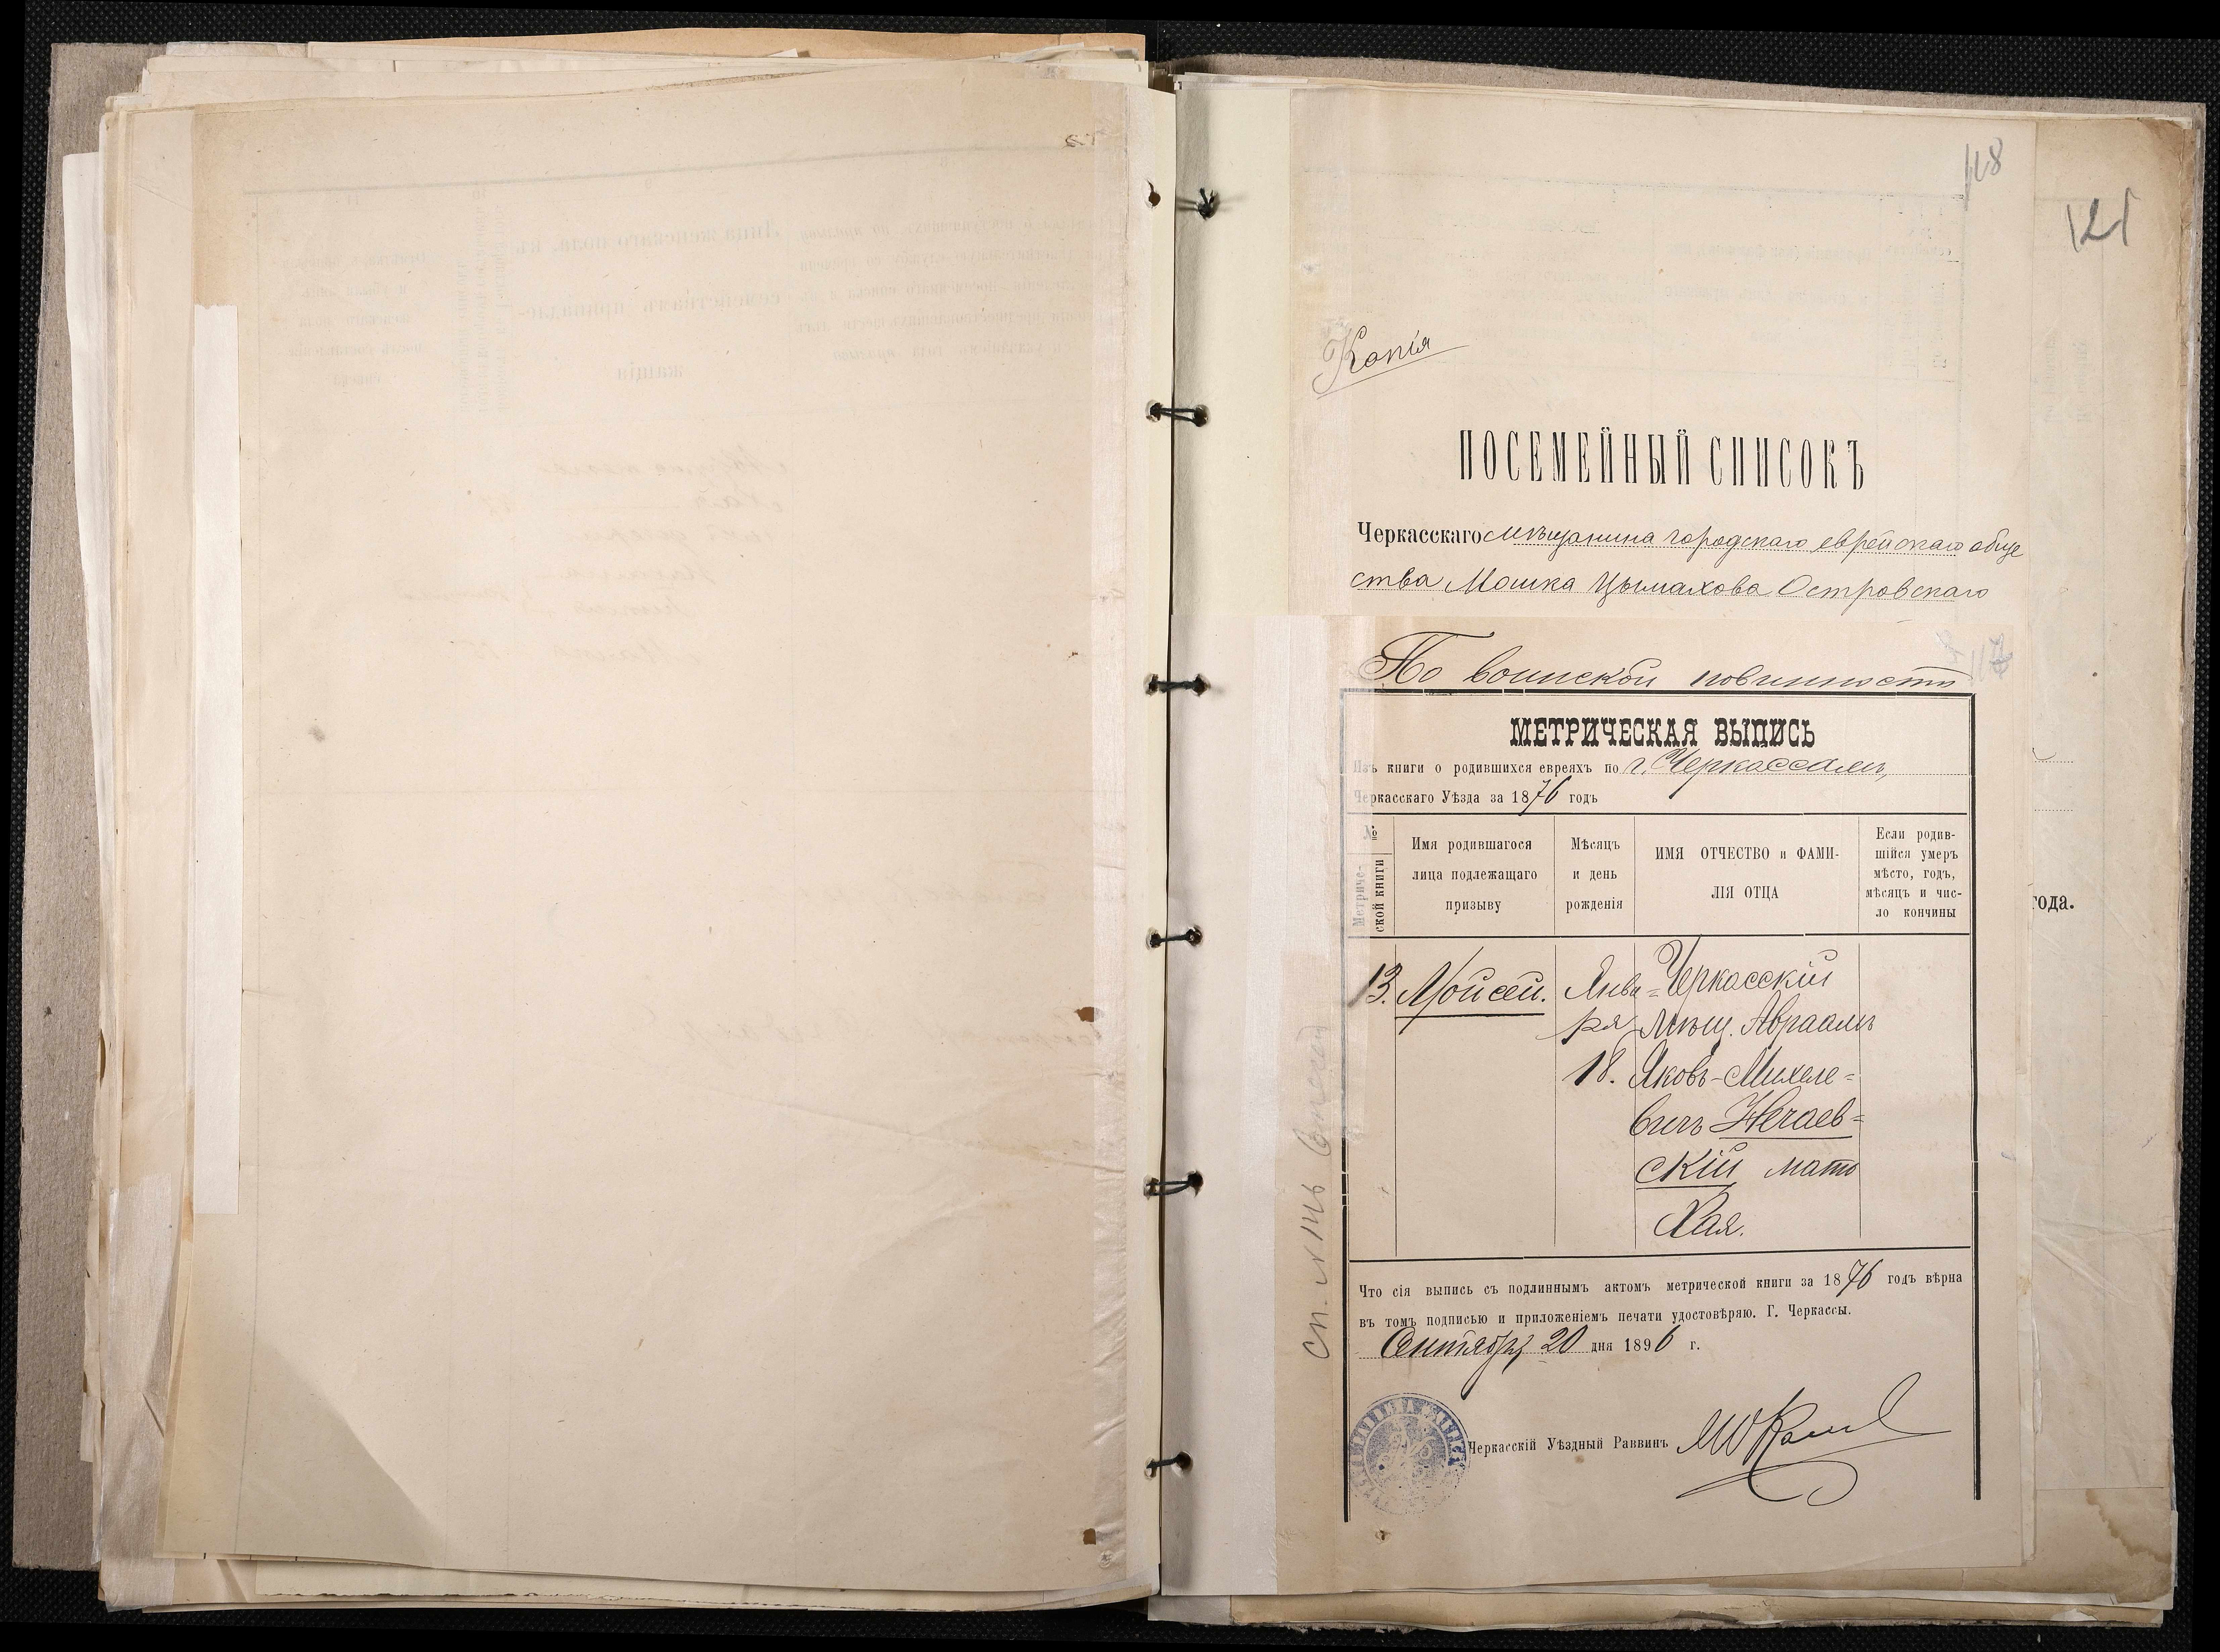 118
121
Копія
ПОСЕМЕЙНЫЙ СПИСОКЪ
Черкасскаго мѣщанина городскаго еврейскаго обще
ства Мошка Цымахова Островскаго
По воинской повинности
МЕТРИЧЕСКАЯ ВЫПИСЬ
Изъ книги о родившихся евреяхъ по г. Черкассамъ,
Черкасскаго Уѣзда за 1876 годъ
№ Метриче-
ской книги
Имя родившагося
лица подлежащаго
призыву
Мѣсяцъ
и день
рожденія
ИМЯ ОТЧЕСТВО и ФАМИ-
ЛІЯ ОТЦА
Если родив-
шійся умеръ
мѣсто, годъ,
мѣсяцъ и чис-
ло кончины
13. Мойсей. Янва= Черкасскій
ря мѣщ. Авраамъ
18. Яковъ-Михеле=
вичъ Нечаев=
скій мать
Хая.
Что сія выпись съ подлиннымъ актомъ метрической книги за 1876 годъ вѣрна
въ томъ подписью и приложеніемъ печати удостовѣряю. Г. Черкассы.
Сентября 20 дня 1896 г.
Черкасскій Уѣздный Раввинъ
года.